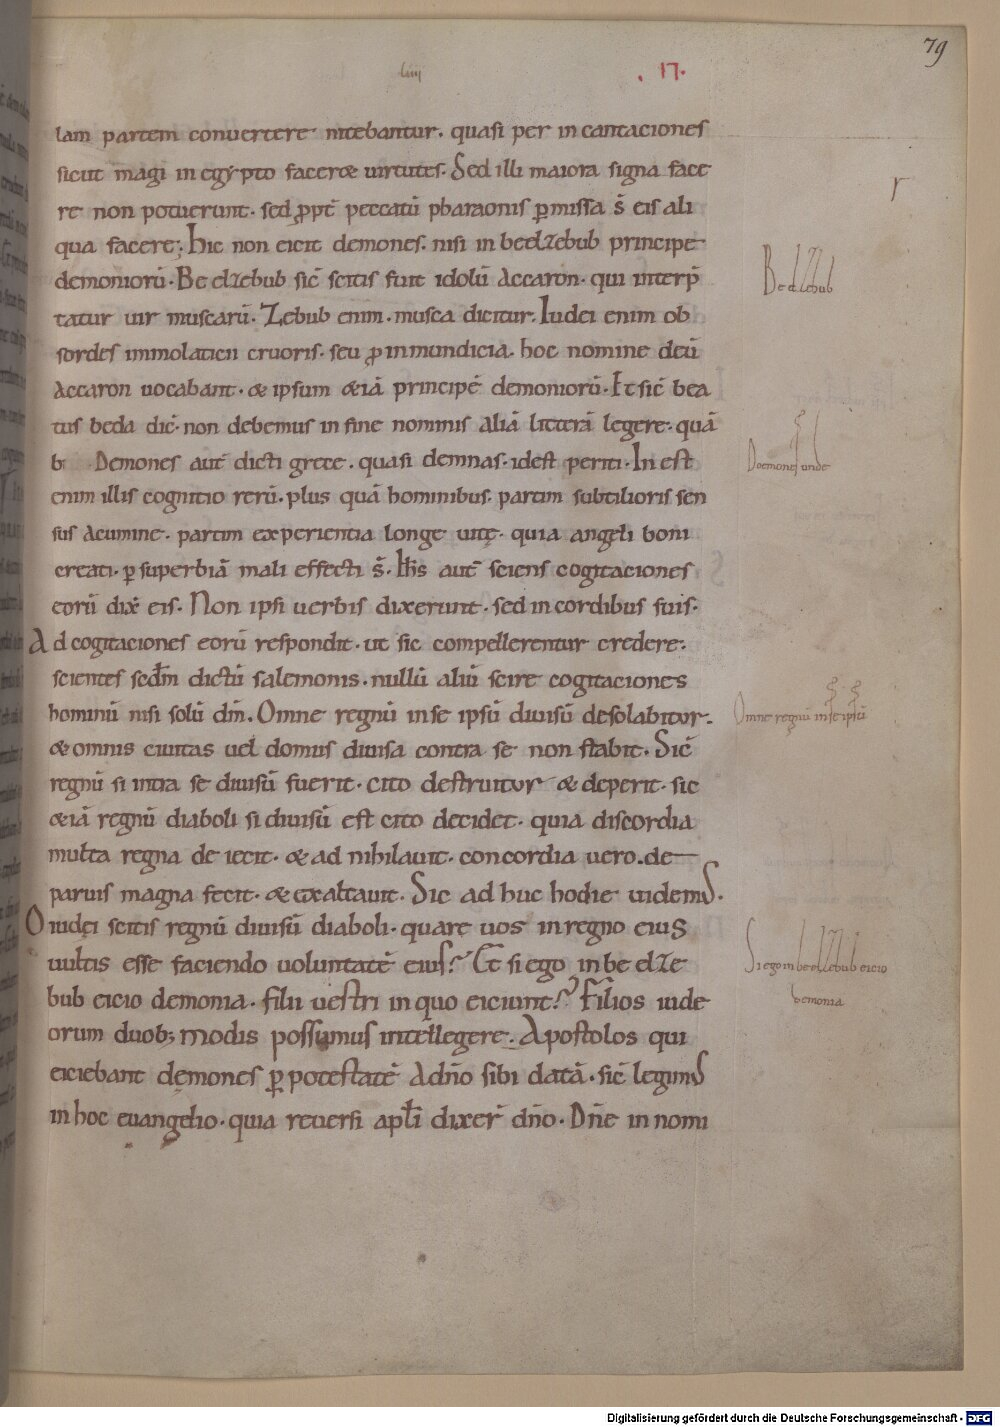 79
liiij
. 17.
lam partem conuertere nitebantur. quasi per in cantaciones
sicut magi in egypto facerae uirtutes. Sed illi maiora signa face
re non potuerunt. sed ꝓpt̄ peccatū pharaonis ꝑmissa s̄ eis ali
qua facere; hic non eicit demones. nisi in beelzebub principe
demoniorū. Beelzebub sic̄ scitis fuit idolū Accaron. qui interp̄
tatur uir muscarū. Zebub enim. musca dicitur. Iudei enim ob
sordes immolaticii cruoris. seu ꝓ inmundicia. hoc nomine deū
Accaron uocabant. & ipsum &iā principē demoniorū. Et sic̄ bea
tus beda dic̄. non debemus in fine nominis aliā litterā legere. quā
b. Demones aut̄ dicti grece. quasi demnas. idest periti. In est
enim illis cognitio rerū. plus quā hominibus. partim subtilioris sen
sus acumine. partim experientia longe uitę. quia angeli boni
creati. ꝑ superbiā mali effecti s̄. Ih̄s aut̄ sciens cogitaciones
eorū dix̄ eis. Non ipsi uerbis dixerunt. sed in cordibus suis.
Ad cogitaciones eorū respondit. ut sic compellerentur credere.
scientes scd̄m dictū salemonis. nullū aliū scire cogitaciones
hominū nisi solū dm̄. Omne regnū inse ipsū diuisū desolabitur.
& omnis ciuitas uel domus diuisa contra se non stabit. Sic̄
regnū si intra se diuisū fuerit. cito destruitur & deperit. sic
&iā regnū diaboli si diuisū est cito decidet. quia discordia
multa regna de iecit. & ad nihilauit. concordia uero. de
paruis magna fecit. & exaltauit. Sic ad huc hodie uidemꝰ.
O iudei scitis regnū diuisū diaboli. quare uos in regno eius
uultis esse faciendo uoluntatē eius? Et si ego in beelze
bub eicio demonia. filii uestri in quo eiciunt? Filios iude
orum duob; modis possumus intellegere. Apostolos qui
eiciebant demones ꝑ potestatē Adn̄o sibi datā. sic̄ legimꝰ
in hoc euangelio. quia reuersi apl̄i dixer̄ dn̄o. Dn̄e in nomi
r
Beelzebub
Doemones unde
Omne regnū inse ipsū
Si ego in beelzebub eicio
demonia
Digitalisierung gefördert durch die Deutsche Forschungsgemeinschaft - DFG